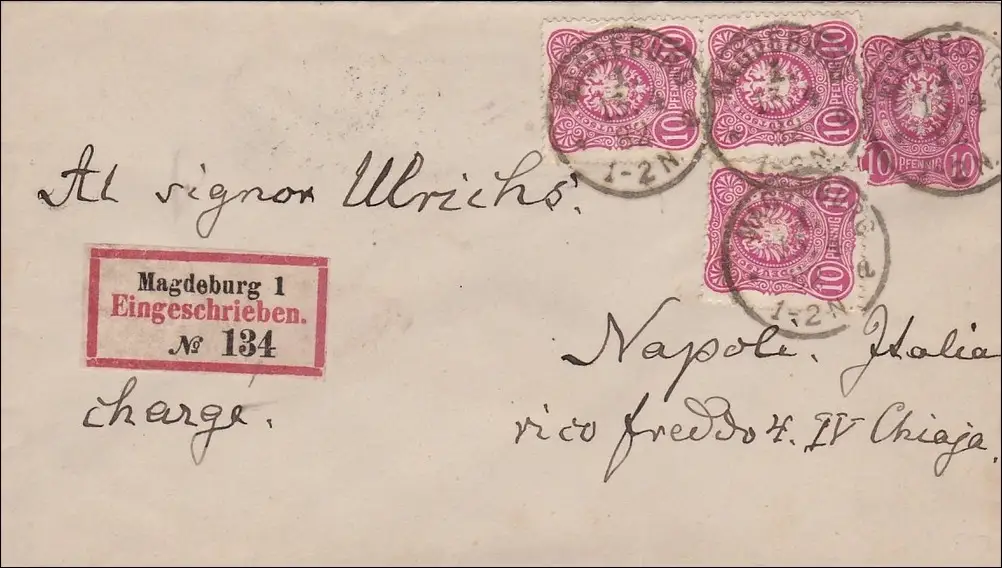 MAGDEBURG
1-2N.
10 PFENNIG 10
MAGDEBURG
1-2N.
10 PFENNIG 10
MAGDEBURG
10 PFENNIG 10
Al signor Ulrichs.
MAGDEBURG
1-2N.
10 PFENNIG 10
Magdeburg 1
Eingeschrieben.
№ 134
Napoli. Italia
charge.
vico freddo 4. IV Chiaja.